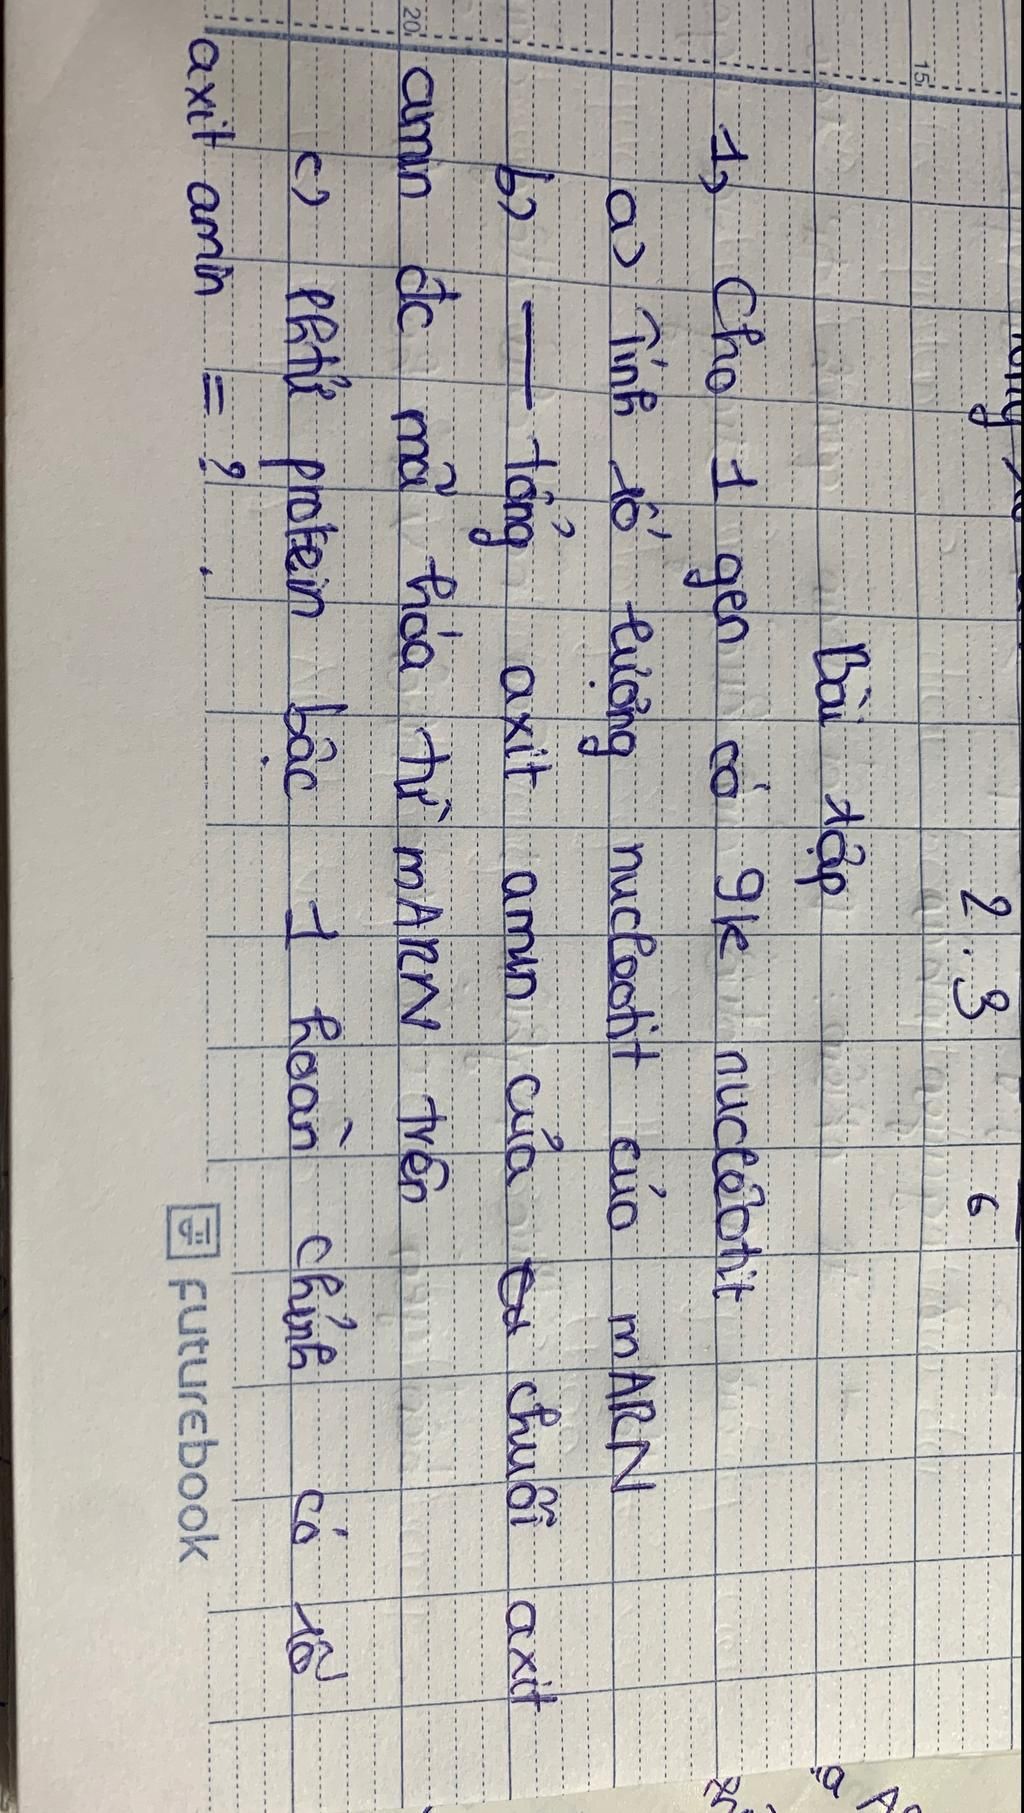 2.3 6
Bài tập
1, Cho 1 gen có 9k nuclêôtit
a) Tính số lượng nuclootit của mARN
b) — tổng axit amin của chuỗi axit
amin đc mã hóa từ mARN trên
c) Phtử protein bậc 1 hoàn chỉnh có số
axit amin = ?
15
20
FUTUREBOOK